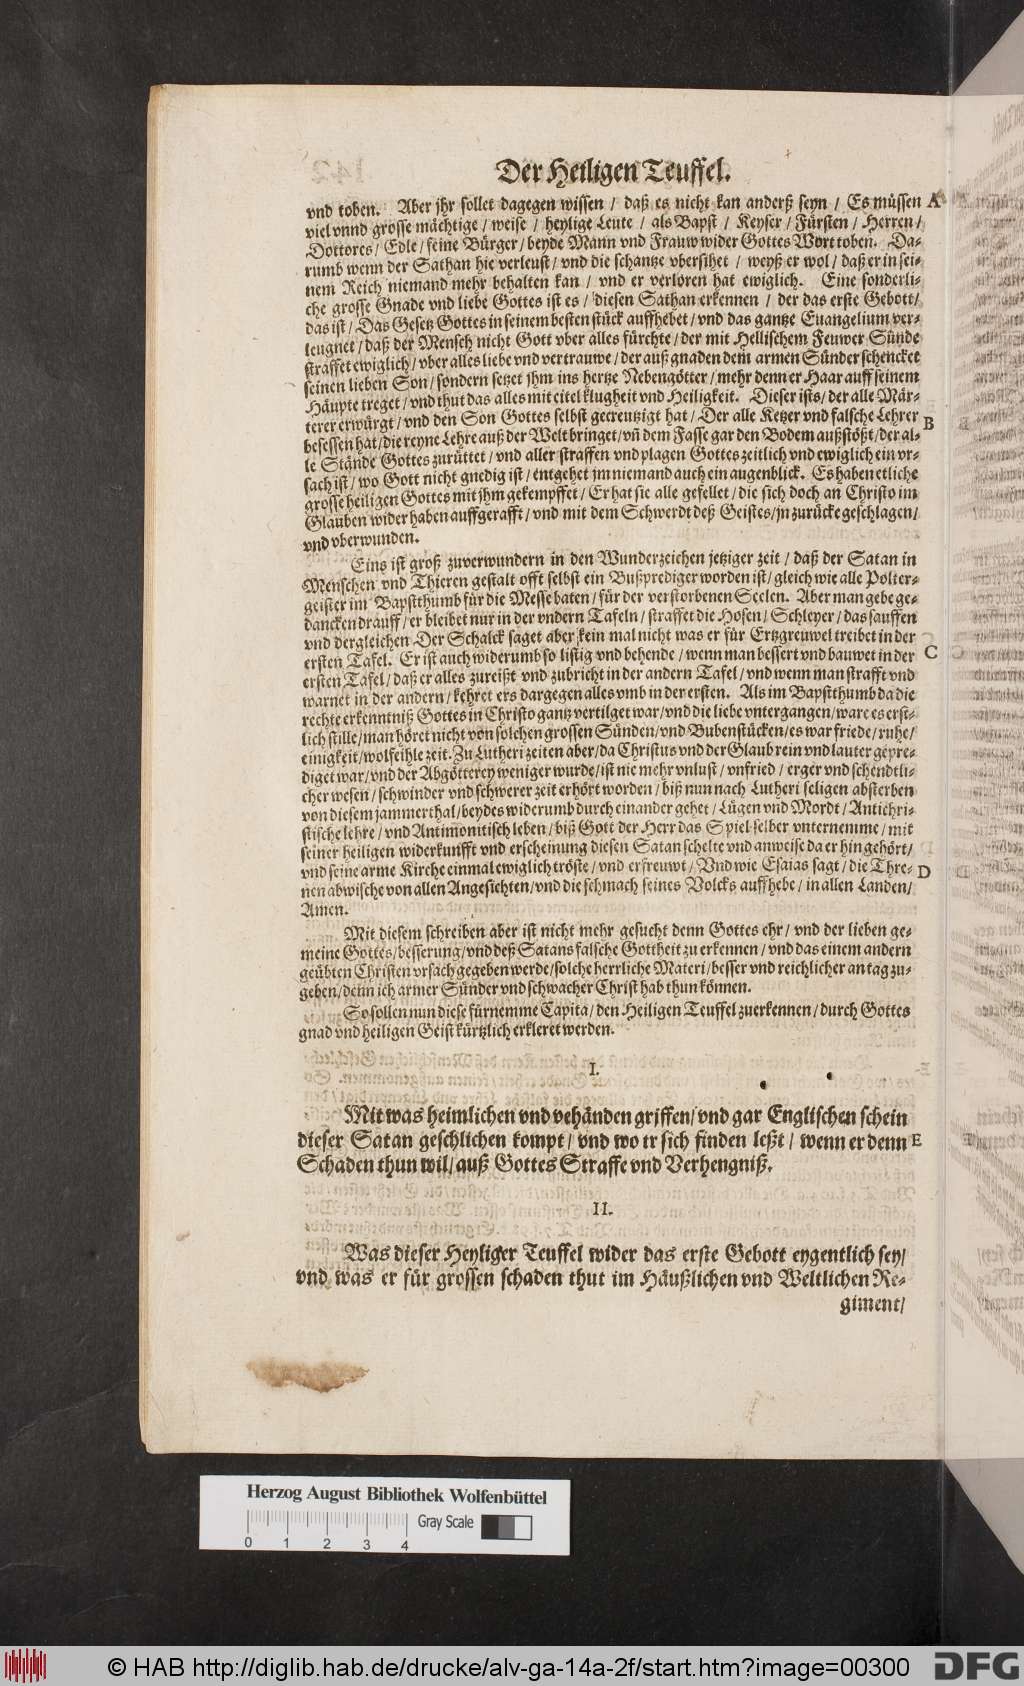 Der Heiligen Teuffel.
vnd toben. Aber jhr sollet dagegen wissen / daß es nicht kan anderß seyn / Es müssen A
viel vnnd grosse mächtige / weise / heylige Leute / als Bapst / Keyser / Fürsten / Herren /
Dottores / Edle / feine Bürger / beyde Mann vnd Frauw wider Gottes Wort toben. Da-
rumb wenn der Sathan hie verleust / vnd die schantze vbersihet / weyß er wol / daß er in sei-
nem Reich niemand mehr behalten kan / vnd er verloren hat ewiglich. Eine sonderli-
che grosse Gnade vnd liebe Gottes ist es / diesen Sathan erkennen / der das erste Gebott /
das ist / Das Gesetz Gottes in seinem besten stück auffhebet / vnd das gantze Euangelium ver-
leugnet / daß der Mensch nicht Gott vber alles fürchte / der mit Hellischem Feuwer Sünde
straffet ewiglich / vber alles liebe vnd vertrauwe / der auß gnaden dem armen Sünder schencket
seinen lieben Son / sondern setzet jhm ins hertze Nebengötter / mehr denn er Haar auff seinem
Häupte treget / vnd thut das alles mit eitel klugheit vnd Heiligkeit. Dieser ists / der alle Mär-
terer erwürgt / vnd den Son Gottes selbst gecreutzigt hat / Der alle Ketzer vnd falsche Lehrer B
besessen hat / die reyne Lehre auß der Welt bringet / vñ dem Fasse gar den Bodem außstößt / der al-
le Stände Gottes zurüttet / vnd aller straffen vnd plagen Gottes zeitlich vnd ewiglich ein vr-
sach ist / wo Gott nicht gnedig ist / entgehet jm niemand auch ein augenblick. Es haben etliche
grosse heiligen Gottes mit jhm gekempffet / Er hat sie alle gefellet / die sich doch an Christo im
Glauben wider haben auffgerafft / vnd mit dem Schwerdt deß Geistes / jn zurücke geschlagen /
vnd vberwunden.
Eins ist groß zuverwundern in den Wunderzeichen jetziger zeit / daß der Satan in
Menschen vnd Thieren gestalt offt selbst ein Bußprediger worden ist / gleich wie alle Polter-
geister im Bapstthumb für die Messe baten / für der verstorbenen Seelen. Aber man gebe ge-
dancken drauff / er bleibet nur in der vndern Tafeln / straffet die Hosen / Schleyer / das sauffen
vnd dergleichen Der Schalck saget aber kein mal nicht was er für Ertzgreuwel treibet in der
ersten Tafel. Er ist auch widerumb so listig vnd behende / wenn man bessert vnd bauwet in der C
ersten Tafel / daß er alles zureißt vnd zubricht in der andern Tafel / vnd wenn man strafft vnd
warnet in der andern / kehret ers dargegen alles vmb in der ersten. Als im Bapstthumb da die
rechte erkenntniß Gottes in Christo gantz vertilget war / vnd die liebe vntergangen / ware es erst-
lich stille / man höret nicht von solchen grossen Sünden / vnd Bubenstücken / es war friede / ruhe /
einigkeit / wolfeihle zeit. Zu Lutheri zeiten aber / da Christus vnd der Glaub rein vnd lauter gepre-
diget war / vnd der Abgötterey weniger wurde / ist nie mehr vnlust / vnfried / erger vnd schendtli-
cher wesen / schwinder vnd schwerer zeit erhört worden / biß nun nach Lutheri seligen absterben
von diesem jammerthal / beydes widerumb durch einander gehet / Lügen vnd Mordt / Antichri-
stische lehre / vnd Antimonitisch leben / biß Gott der Herr das Spiel selber vnternemme / mit
seiner heiligen widerkunfft vnd erscheinung diesen Satan schelte vnd anweise da er hin gehört /
vnd seine arme Kirche einmal ewiglich tröste / vnd erfreuwt / Vnd wie Esaias sagt / die Thre- D
nen abwische von allen Angesichten / vnd die schmach seines Volcks auffhebe / in allen Landen /
Amen.
Mit diesem schreiben aber ist nicht mehr gesucht denn Gottes ehr / vnd der lieben ge-
meine Gottes / besserung / vnd deß Satans falsche Gottheit zu erkennen / vnd das einem andern
geübten Christen vrsach gegeben werde / solche herrliche Materi / besser vnd reichlicher an tag zu-
geben / denn ich armer Sünder vnd schwacher Christ hab thun können.
So sollen nun diese fürnemme Capita / den Heiligen Teuffel zuerkennen / durch Gottes
gnad vnd heiligen Geist kürtzlich erkleret werden.
I.
Mit was heimlichen vnd vehänden griffen / vnd gar Englischen schein
dieser Satan geschlichen kompt / vnd wo er sich finden leßt / wenn er denn E
Schaden thun wil / auß Gottes Straffe vnd Verhengniß.
II.
Was dieser Heyliger Teuffel wider das erste Gebott eygentlich sey /
vnd was er für grossen schaden thut im Häußlichen vnd Weltlichen Re-
giment /
Herzog August Bibliothek Wolfenbüttel
Gray Scale
0 1 2 3 4
© HAB http://diglib.hab.de/drucke/alv-ga-14a-2f/start.htm?image=00300 DFG